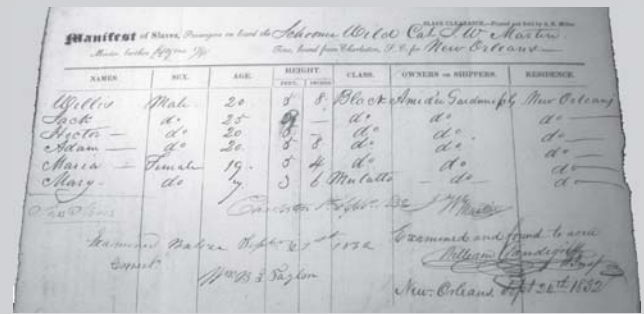 SLAVE CLEARANCE.—Printed and Sold by A. E. Miller
Manifest of Slaves, Passengers on board the Schooner Wild Cat J. W. Martin
Master burthen fifty one Tons, bound from Charleston, S. C. for New Orleans
NAMES. SEX. AGE. HEIGHT. CLASS. OWNERS or SHIPPERS. RESIDENCE.
FEET. INCHES
Willis Male 20 5 8 Black Gardeun New Orleans
Jack do 25 — do do do
Hector — do 20 5 — do do do
Adam — do 20 5 8 do do do
Maria — Female 19 5 4 do do do
Mary do 7 3 6 Mulatto — do do
Charleston Sept. 1832 J W Martin
Examined Balize Sept 21st 1832 Examined and found to accord
Correct William
Wm B G Taylor
New Orleans, Sept 26th 1832